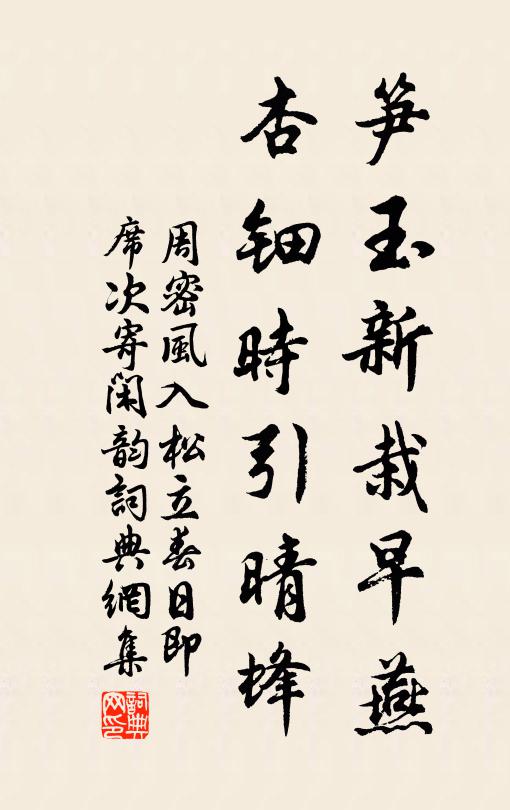 笋玉新栽早燕
杏钿時引晴蜂
周密風入松立春日即
席次寄閑韵詞典網集
詞典网印